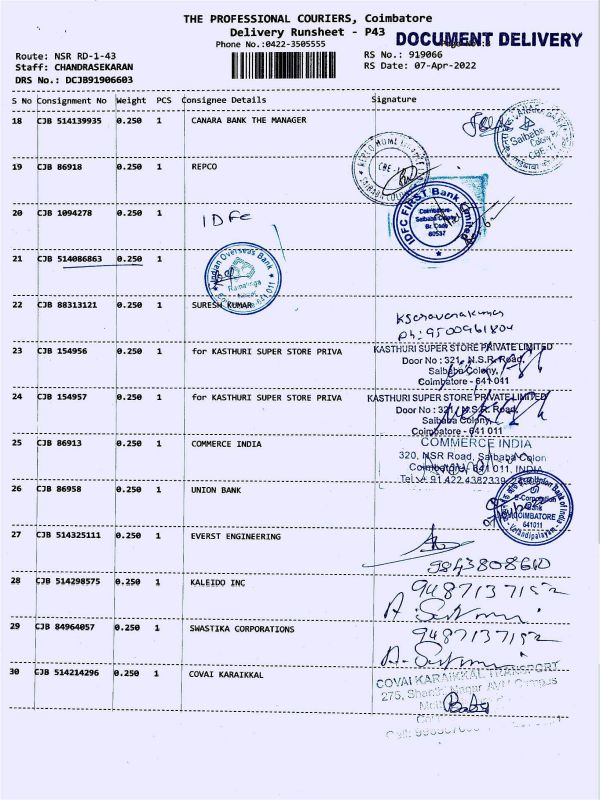 THE PROFESSIONAL COURIERS, Coimbatore
Delivery Runsheet - P43
DOCUMENT DELIVERY
Phone No.:0422-3505555
Route: NSR RD-1-43
RS No.: 919066
Staff: CHANDRASEKARAN
RS Date: 07-Apr-2022
DRS No.: DCJB91906603
S No Consignment No Weight PCS Consignee Details Signature
18 CJB 514139935 0.250 1 CANARA BANK THE MANAGER
CANARA BANK
Saibaba
Colony Br
CBE-11
19 CJB 86918 0.250 1 REPCO
REPCO HOME FINANCE
CBE-11
SAIBABA COLONY
20 CJB 1094278 0.250 1 IDFC
IDFC FIRST Bank Limited
Coimbatore-
Saibaba Colony
Br. Code
60537
21 CJB 514086863 0.250 1
Indian Overseas Bank
Ramalinga
Nagar
641 011
22 CJB 88313121 0.250 1 SURESH KUMAR
Ph: 9500961804
23 CJB 154956 0.250 1 for KASTHURI SUPER STORE PRIVA
KASTHURI SUPER STORE PRIVATE LIMITED
Door No : 321, N.S.R. Road,
Saibaba Colony,
Coimbatore - 641 011
24 CJB 154957 0.250 1 for KASTHURI SUPER STORE PRIVA
KASTHURI SUPER STORE PRIVATE LIMITED
Door No : 321, N.S.R. Road,
Saibaba Colony,
Coimbatore - 641 011
25 CJB 86913 0.250 1 COMMERCE INDIA
COMMERCE INDIA
320, NSR Road, Saibaba Colon
Coimbatore 641 011, INDIA
Tel : 91 422 4382339
26 CJB 86958 0.250 1 UNION BANK
Union Bank of India
e-Corporation
Bank
COIMBATORE
641011
Varandipalayam
27 CJB 514325111 0.250 1 EVERST ENGINEERING
9843808610
28 CJB 514298575 0.250 1 KALEIDO INC
9487137152
29 CJB 84964057 0.250 1 SWASTIKA CORPORATIONS
9487137152
30 CJB 514214296 0.250 1 COVAI KARAIKKAL
COVAI KARAIKKAL TRANSPORT
275, Shanthi Nagar
Babu
Cell: